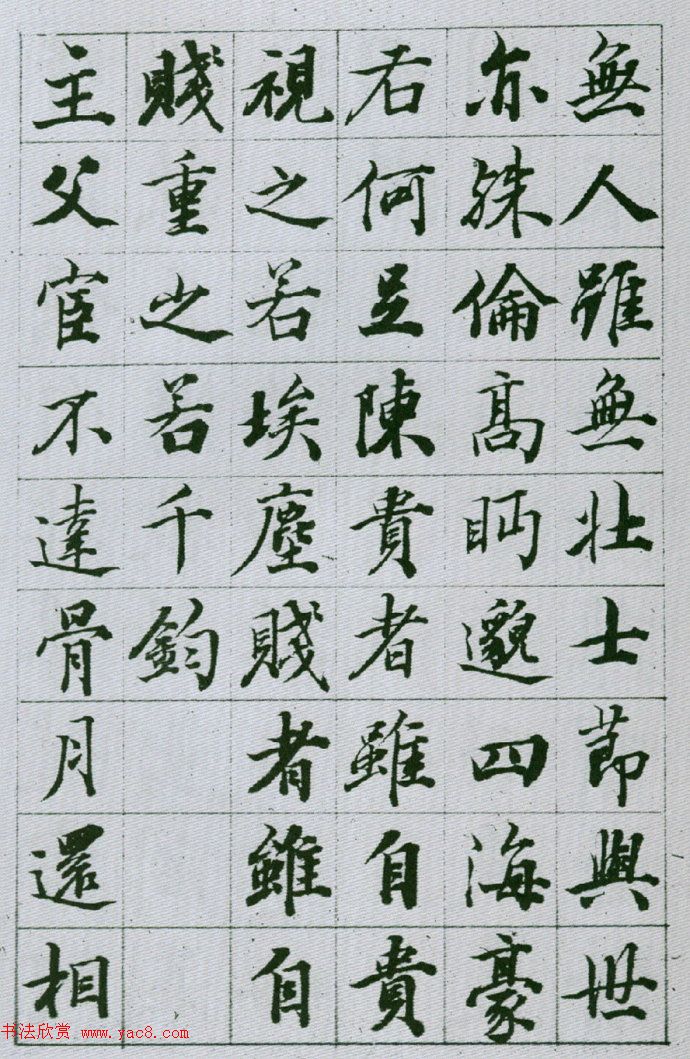 無人雖無壯士節與世
亦殊倫高眄邈四海豪
右何足陳貴者雖自貴
視之若埃塵賤者雖自
賤重之若千鈞
主父宦不達骨月還相
书法欣赏 www.yac8.com